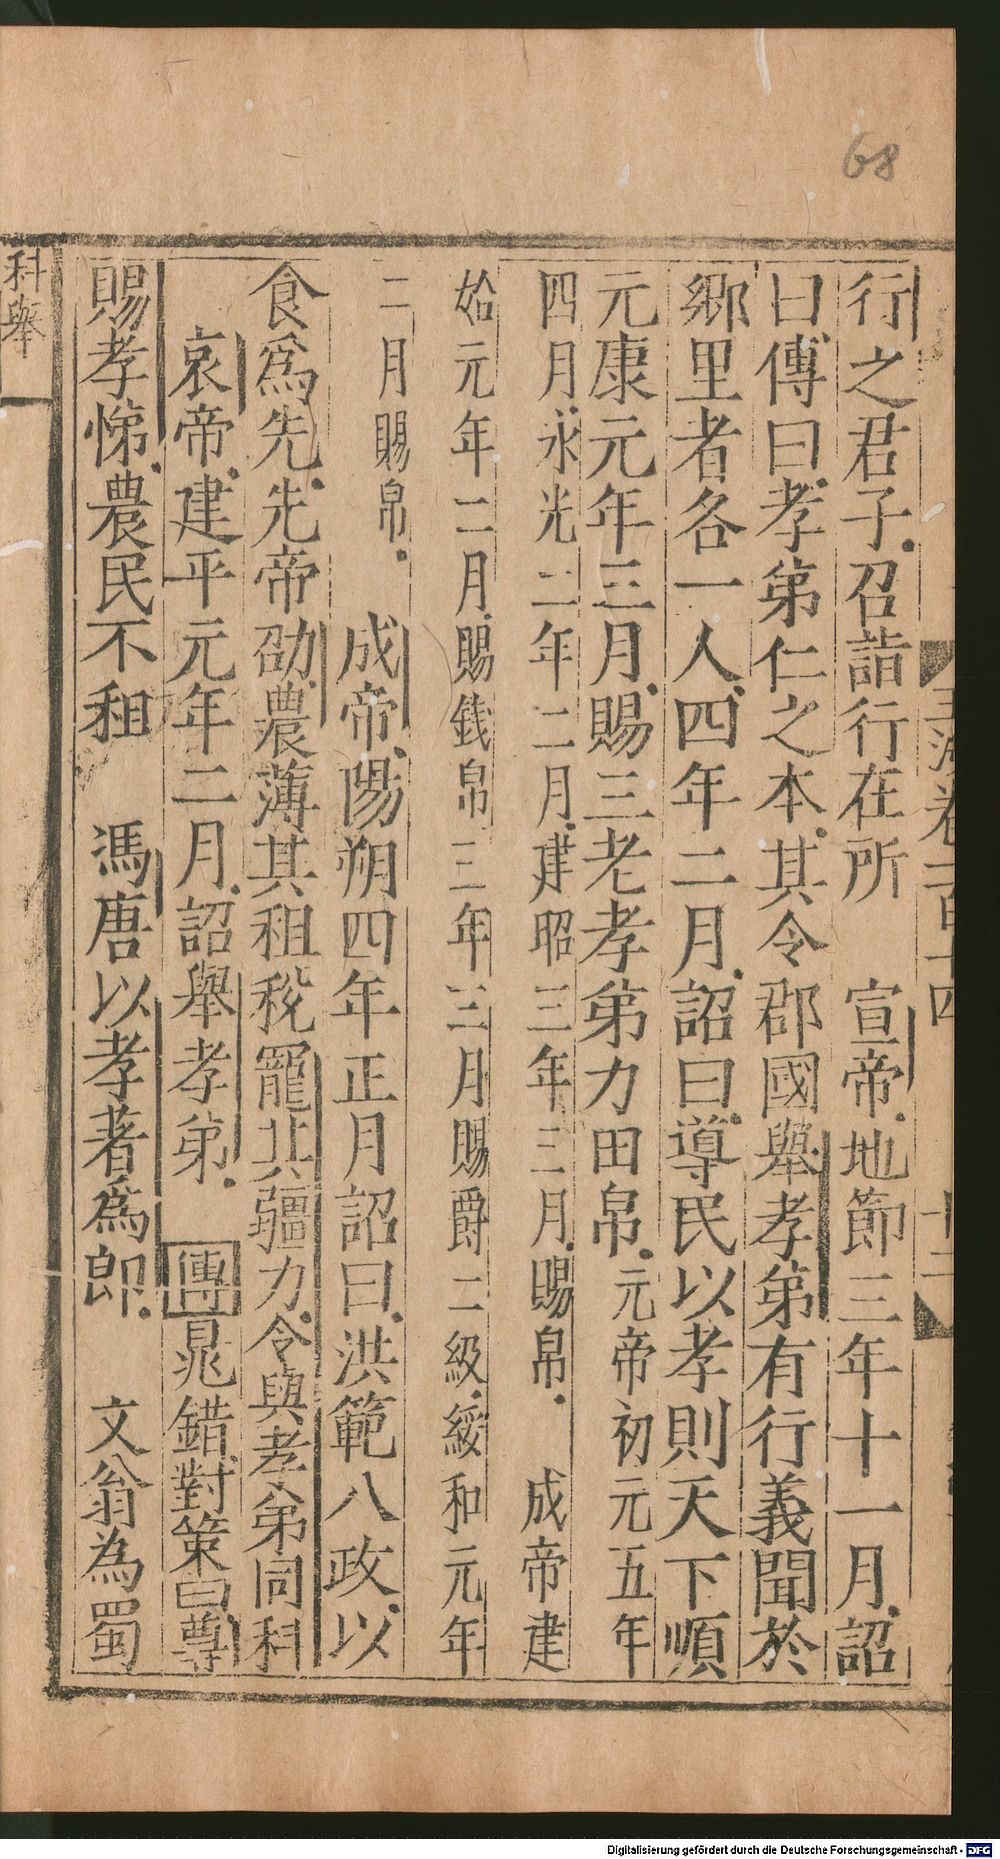 68
行之君子召詣行在所　宣帝地節三年十一月詔
曰傳曰孝弟仁之本其令郡國舉孝弟有行義聞於
鄉里者各一人四年二月詔曰導民以孝則天下順
元康元年三月賜三老孝弟力田帛元帝初元五年
四月永光二年二月建昭三年三月賜帛　成帝建
始元年二月賜錢帛三年三月賜爵二級綏和元年
二月賜帛　成帝陽朔四年正月詔曰洪範八政以
食爲先先帝劭農薄其租稅寵其疆力令與孝弟同科
哀帝建平元年二月詔舉孝弟　傳晁錯對策曰尊
賜孝悌農民不租　馮唐以孝著爲郎　文翁為蜀
科舉
Digitalisierung gefördert durch die Deutsche Forschungsgemeinschaft - DFG